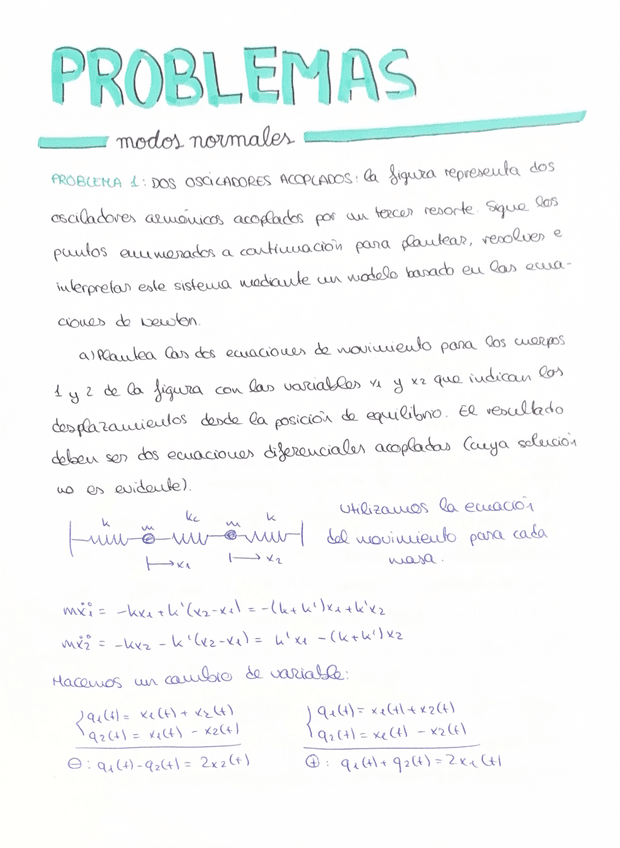 PROBLEMAS
modos normales
PROBLEMA 1: DOS OSCILADORES ACOPLADOS: la figura representa dos
osciladores armónicos acoplados por un tercer resorte. Sigue los
puntos enumerados a continuación para plantear, resolver e
interpretar este sistema mediante un modelo basado en las ecua-
ciones de Newton.
a) Plantea las dos ecuaciones de movimiento para los cuerpos
1 y 2 de la figura con las variables x1 y x2 que indican los
desplazamientos desde la posición de equilibrio. El resultado
deben ser dos ecuaciones diferenciales acopladas (cuya solución
no es evidente).
k m kc m k
x1 x2
Utilizamos la ecuación
del movimiento para cada
masa.
mẍ1 = -kx1 + k'(x2-x1) = -(k+k')x1 + k'x2
mẍ2 = -kx2 - k'(x2-x1) = k'x1 - (k+k')x2
Hacemos un cambio de variable:
q1(t) = x1(t) + x2(t)
q2(t) = x1(t) - x2(t)
⊖: q1(t) - q2(t) = 2x2(t)
q1(t) = x1(t) + x2(t)
q2(t) = x1(t) - x2(t)
⊕: q1(t) + q2(t) = 2x1(t)